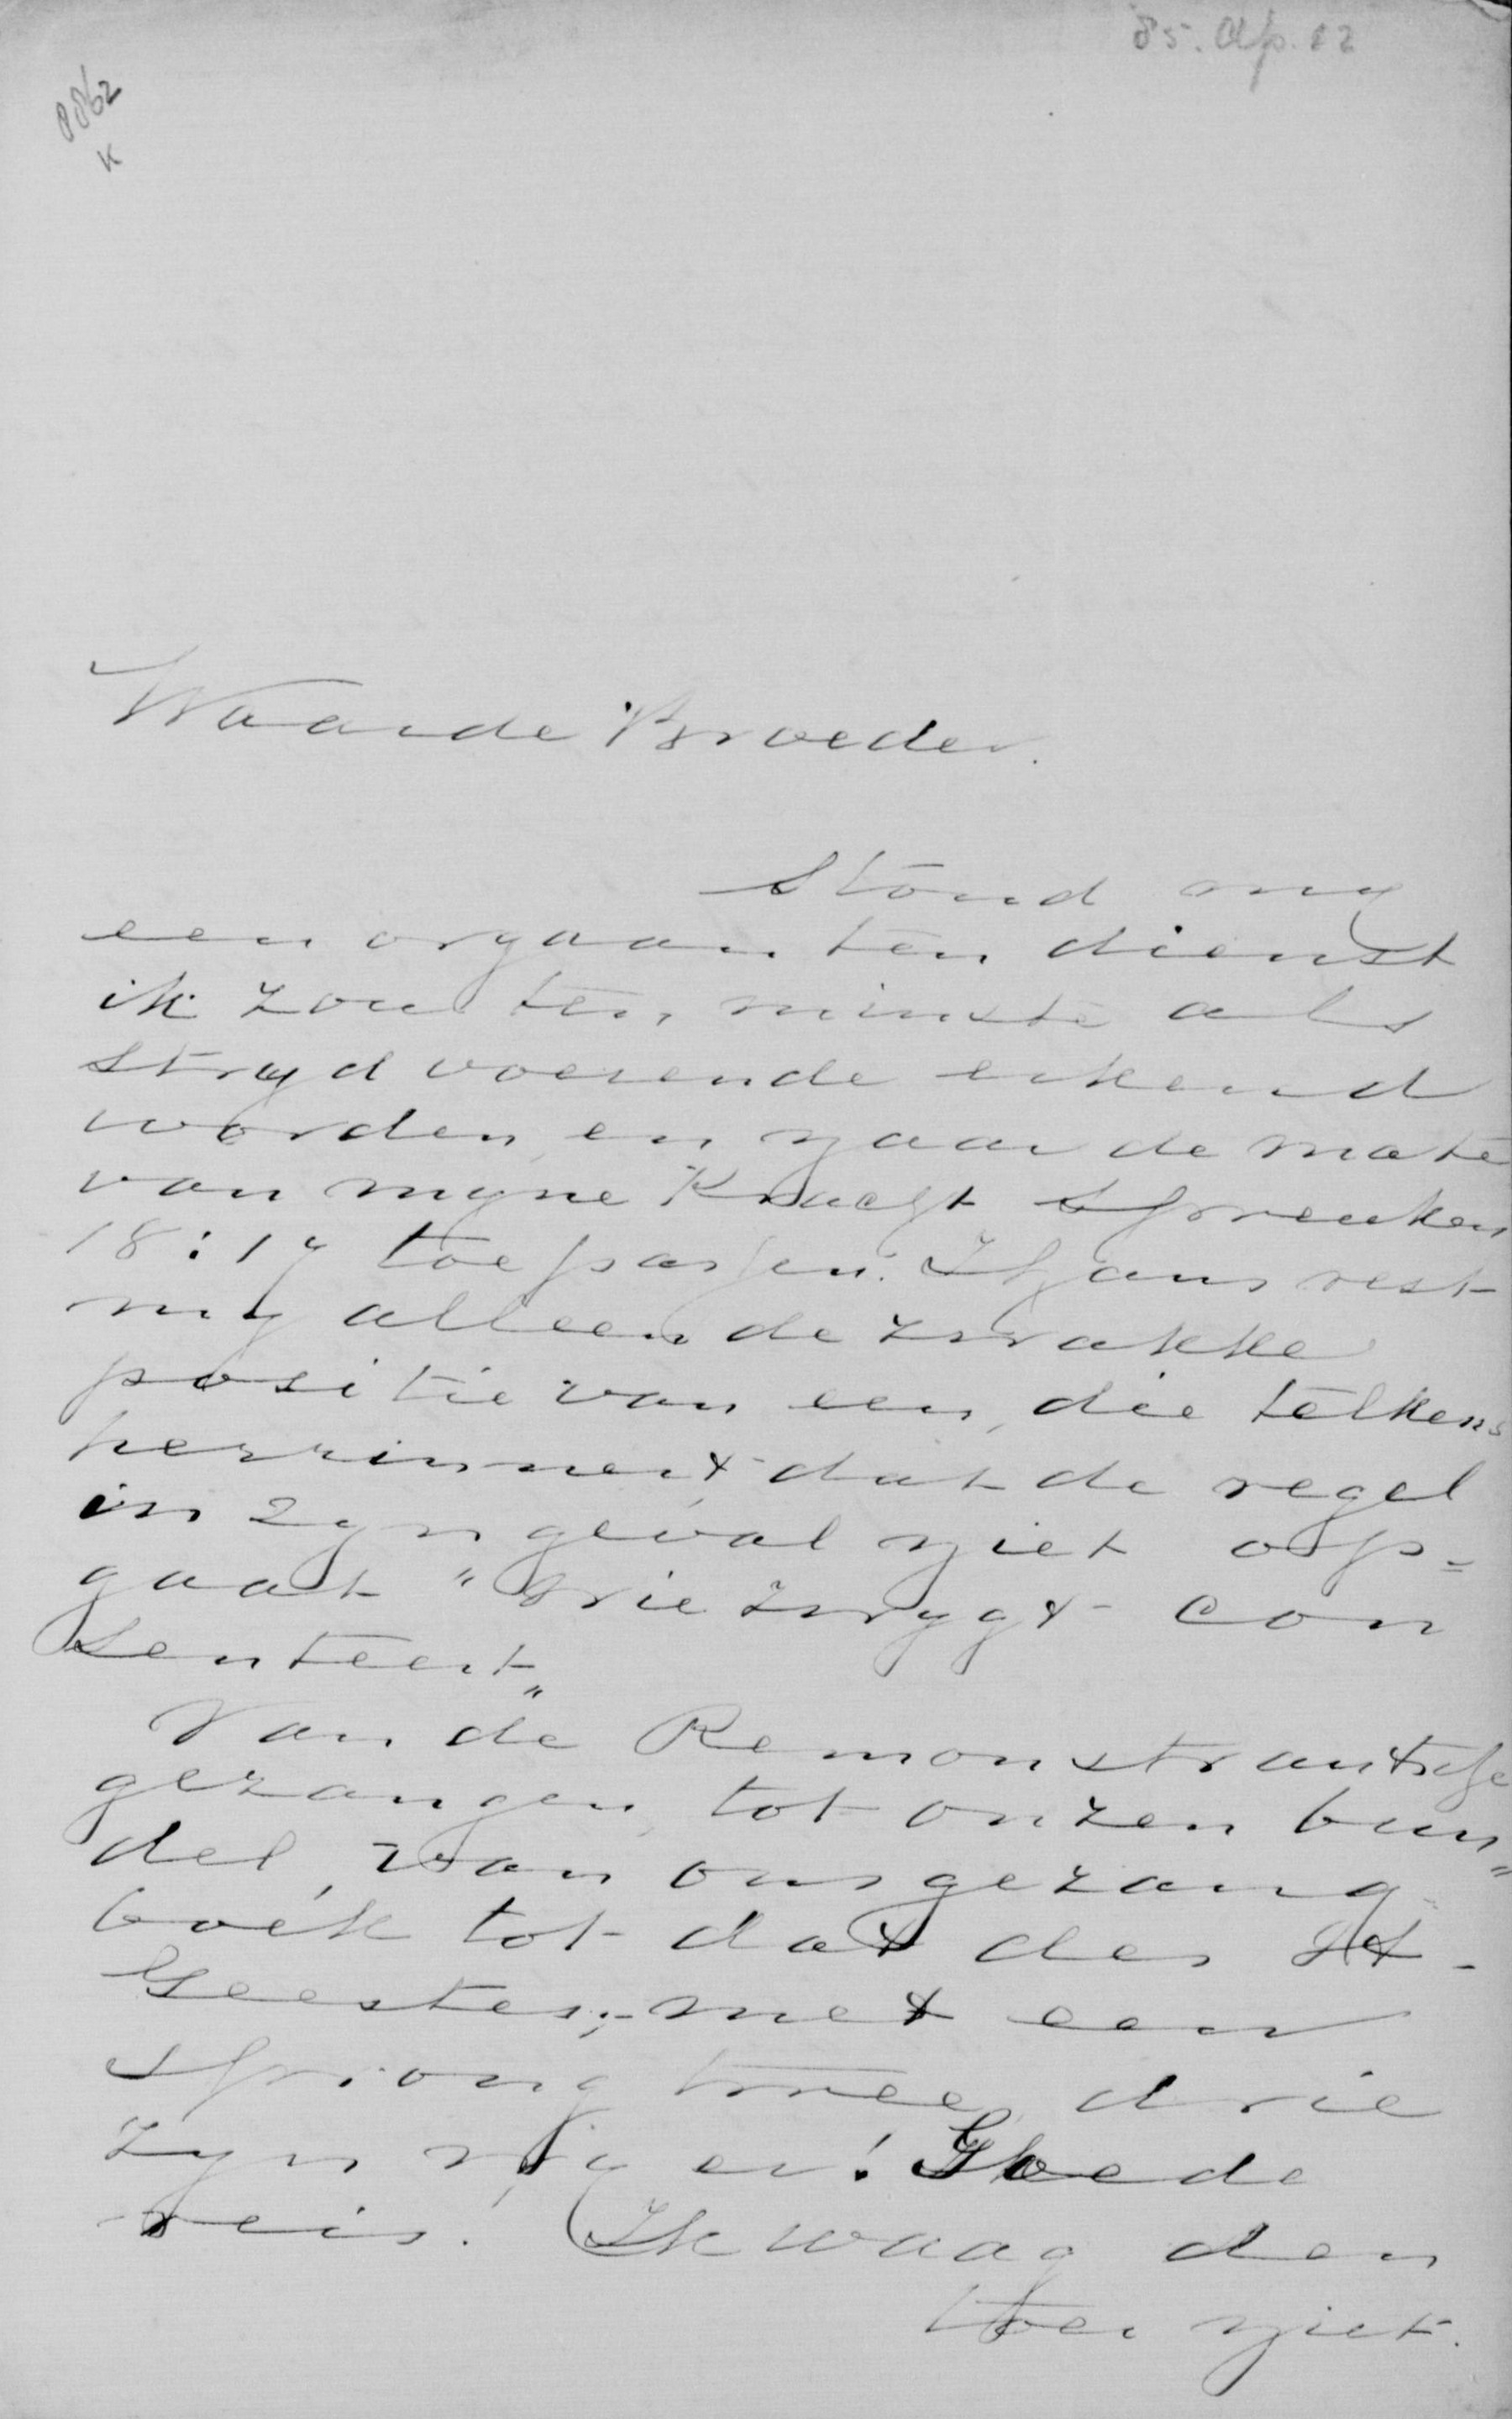 85. Ap. 12
8862
K
Waarde Broeder.
Stond my
een orgaan ten dienst
ik zou ten minste als
strydvoerende erkend
worden, en naar de mate
van myne Kracht Spreuken
18:17 toepassen. Thans rest
my alleen de zwakke
positie van een, die telkens
herinnert, dat de regel
in zyn geval niet op=
gaat "Wie zwygt con
senteert"
Van de Remonstrantsche
gezangen, tot onzen bun=
del, van ons gezang
boek tot dat des H.
Geestes; met een
sprong twee, drie
zyn wy er! Goede
reis! Ik waag den
toer niet.